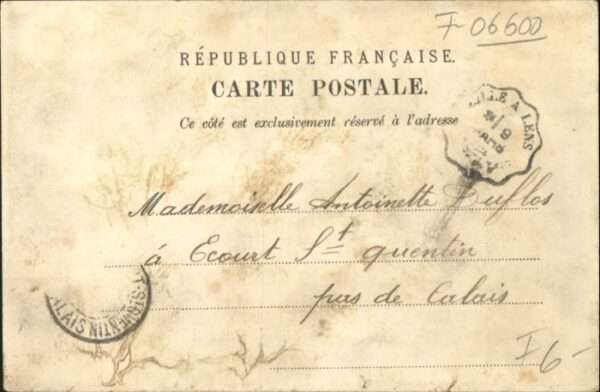 F 06600
RÉPUBLIQUE FRANÇAISE.
CARTE POSTALE.
Ce côté est exclusivement réservé à l'adresse
LILLE A LENS
Mademoiselle Antoinette Duflos
à Ecourt St quentin
pas de Calais
T-ST QUENTIN
ALAIS
F6-